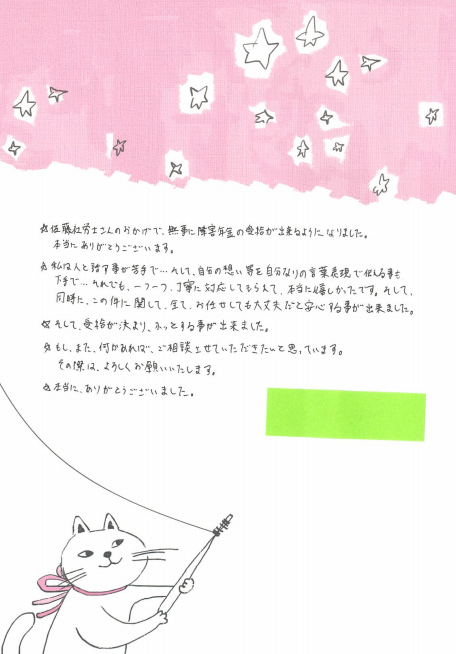 ☆佐藤社労士さんのおかげで、無事に障害年金の受給が出来るようになりました。
本当にありがとうございます。
☆私は人と話す事が苦手で…そして、自分の想い等を自分なりの言葉表現で伝える事も
下手で…それでも、一つ一つ、丁寧に対応してもらえて、本当に嬉しかったです。そして、
同時に、この件に関して、全て、お任せしても大丈夫だと安心する事が出来ました。
☆そして、受給が決まり、ホッとする事が出来ました。
☆もし、また、何かあれば、ご相談させていただきたいと思っています。
その際は、よろしくお願いいたします。
☆本当に、ありがとうございました。